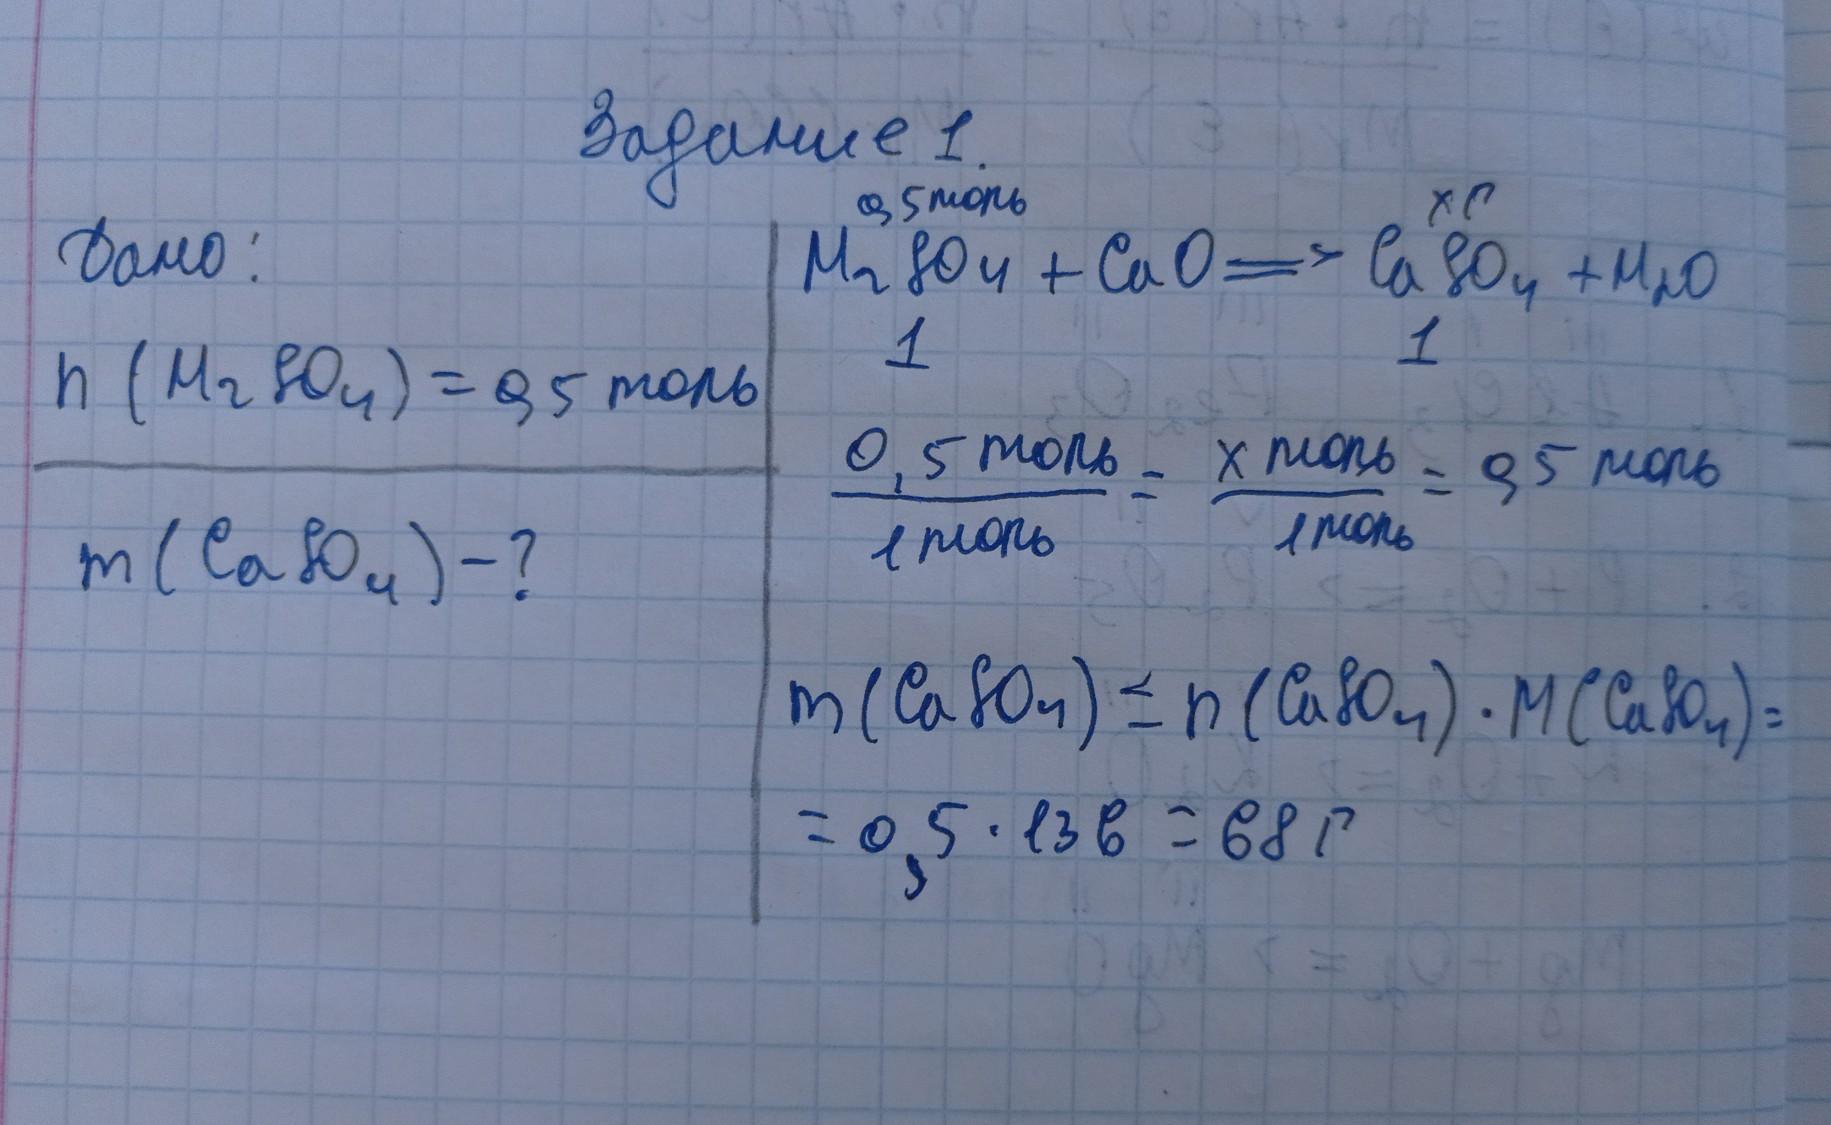 Задание 1.
Дано:
n (H₂SO₄) = 0,5 моль
m (CaSO₄) - ?
0,5 моль х г
H₂SO₄ + CaO => CaSO₄ + H₂O
1 1
0,5 моль / 1 моль = х моль / 1 моль = 0,5 моль
m (CaSO₄) = n (CaSO₄) · M (CaSO₄) =
= 0,5 · 136 = 68 г